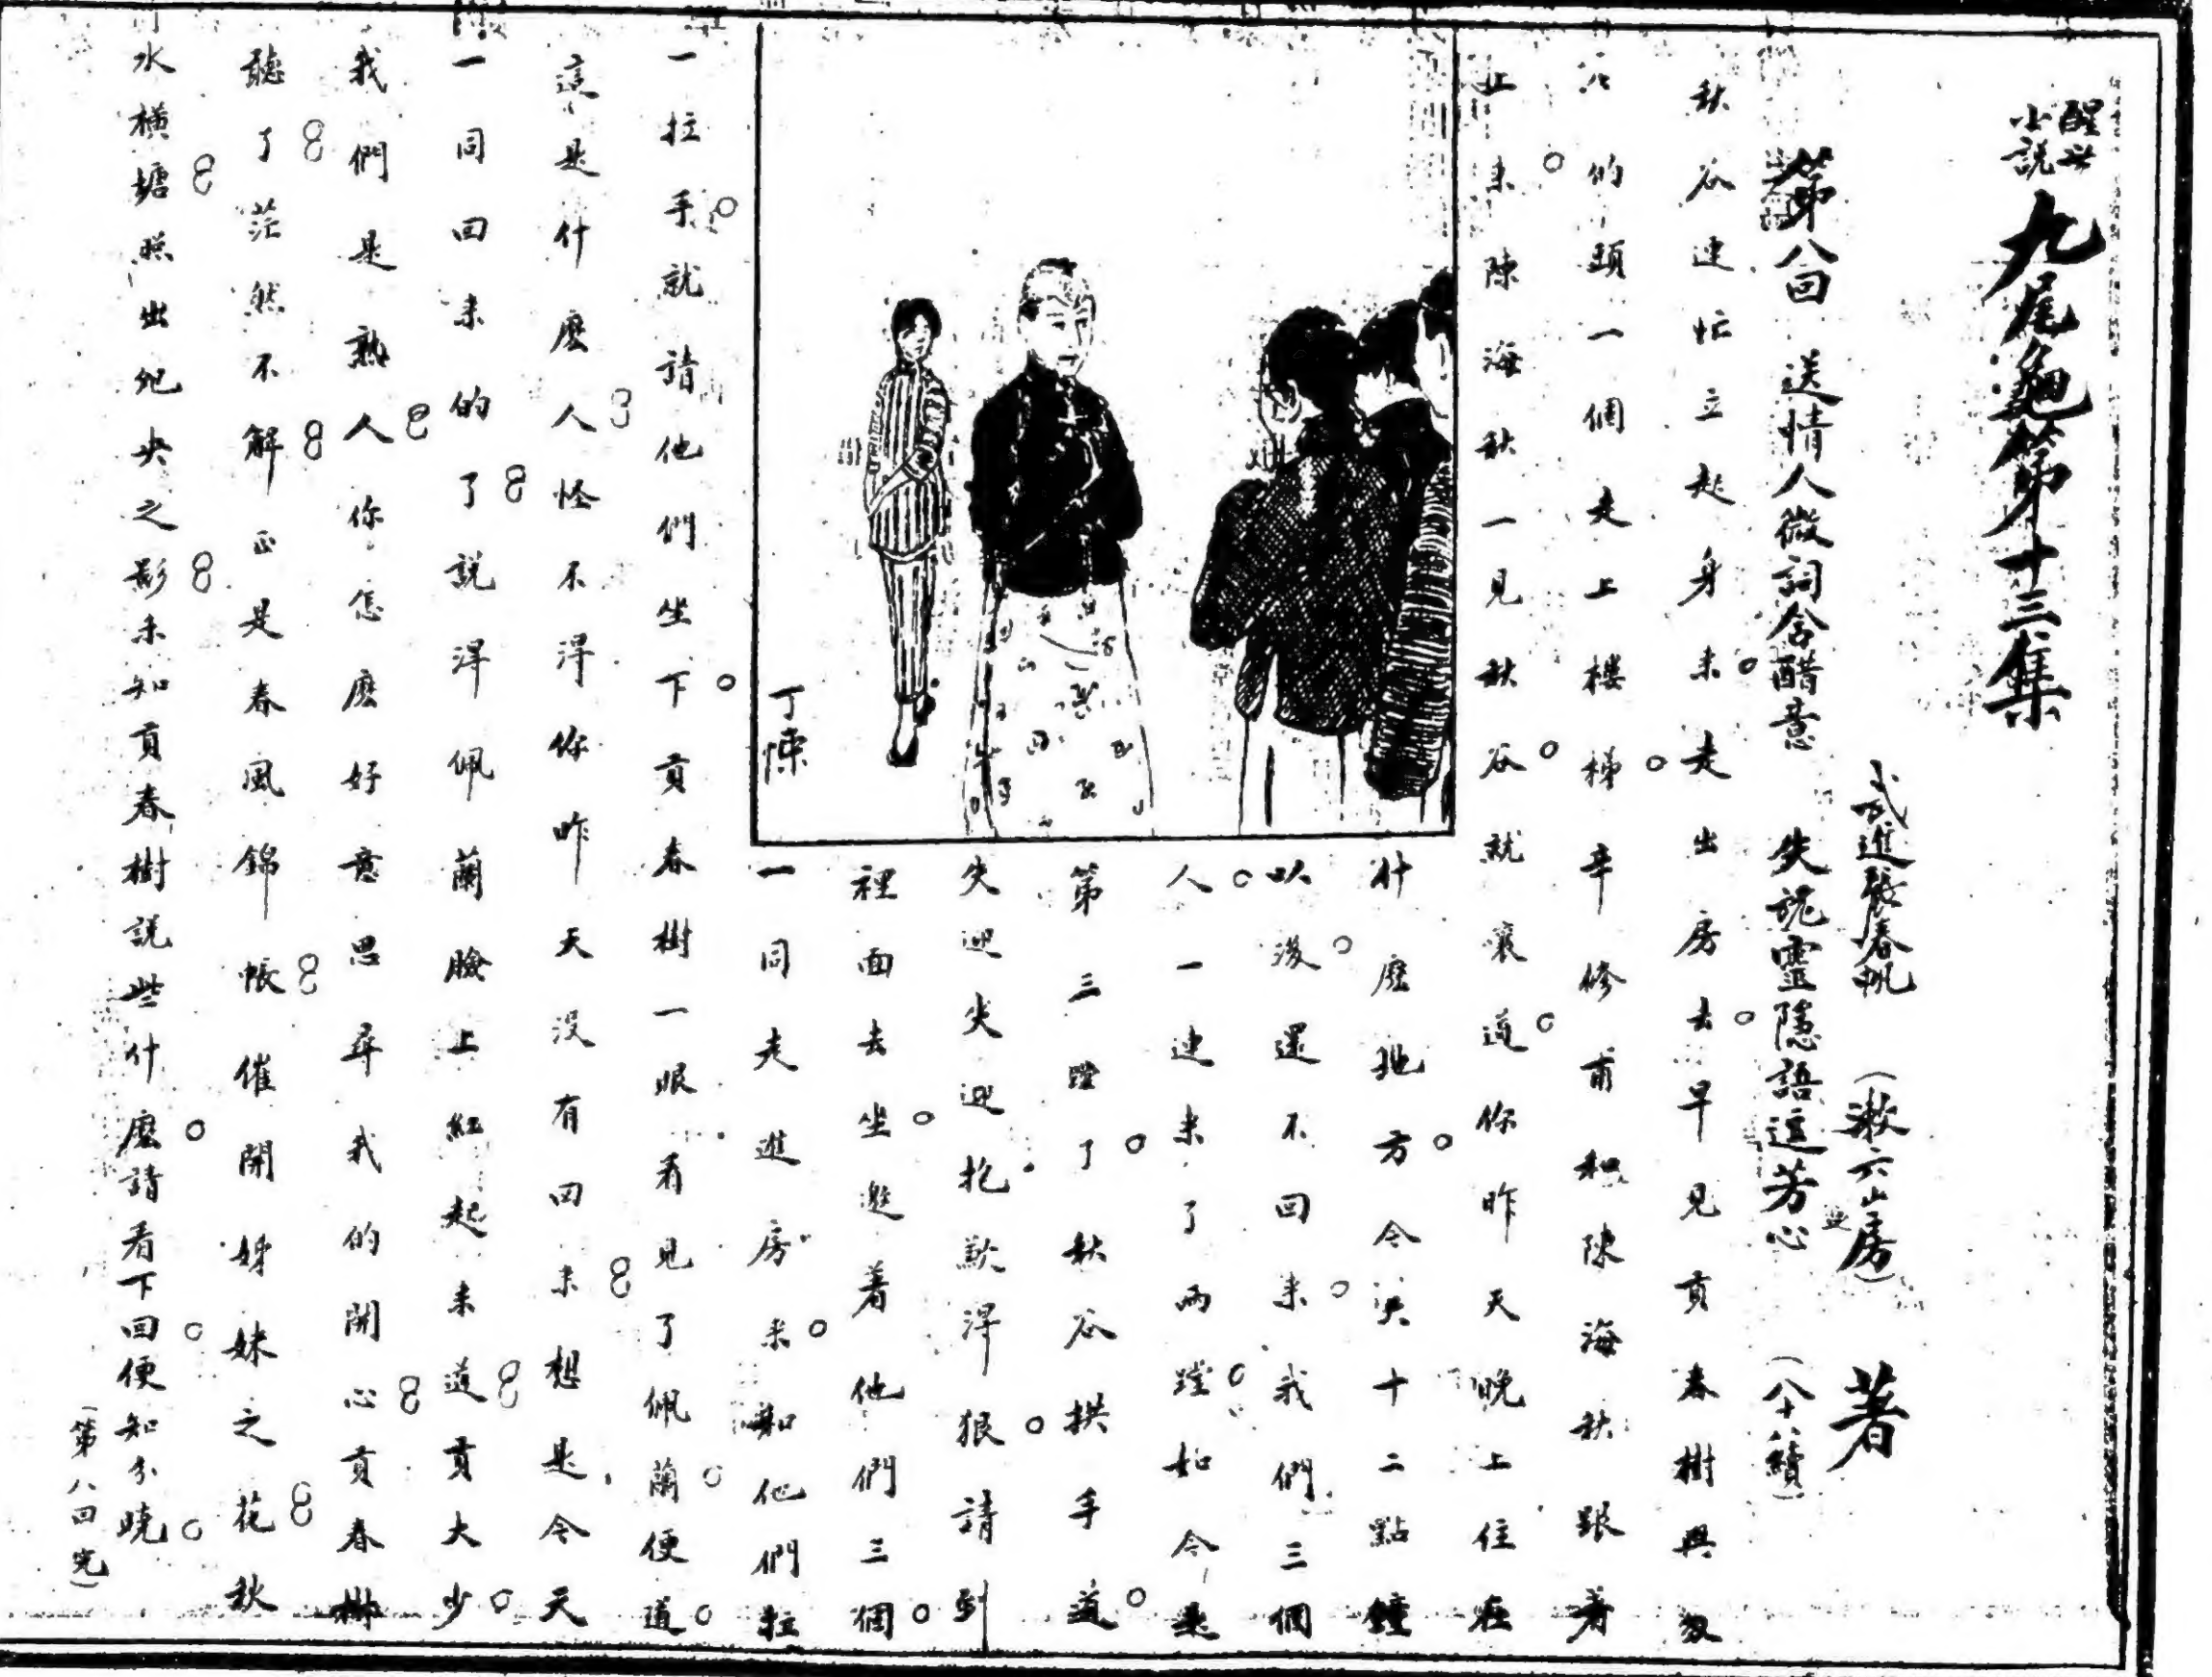 醒世小說
九尾龜第十三集
武進張春帆（漱六山房）著
第八回　送情人微詞含醋意　失魂靈隱語逗芳心（八十八續）
秋谷連忙立起身來走出房去早見貢春樹興匆
匆的頭一個走上樓梯辛修甫和陳海秋跟着
上來陳海秋一見秋谷就嚷道你昨天晚上住在
什麼地方今天十二點鐘
以後還不回來我們三個
人一連來了兩蹚如今是
第三蹚了秋谷拱手道
失迎失迎抱歉得狠請到
裡面去坐趁着他們三個
一同走進房來和他們拉
一拉手就請他們坐下貢春樹一眼看見了佩蘭便道
這是什麼人怪不得你昨天沒有回來想是今天
一同回來的了說得佩蘭臉上紅起來道貢大少
我們是熟人你怎麼好意思尋我的開心貢春樹
聽了茫然不解正是春風錦帳催開姊妹之花秋
水橫塘照出鴛央之影未知貢春樹說些什麼請看下回便知分曉
（第八回完）
丁悚